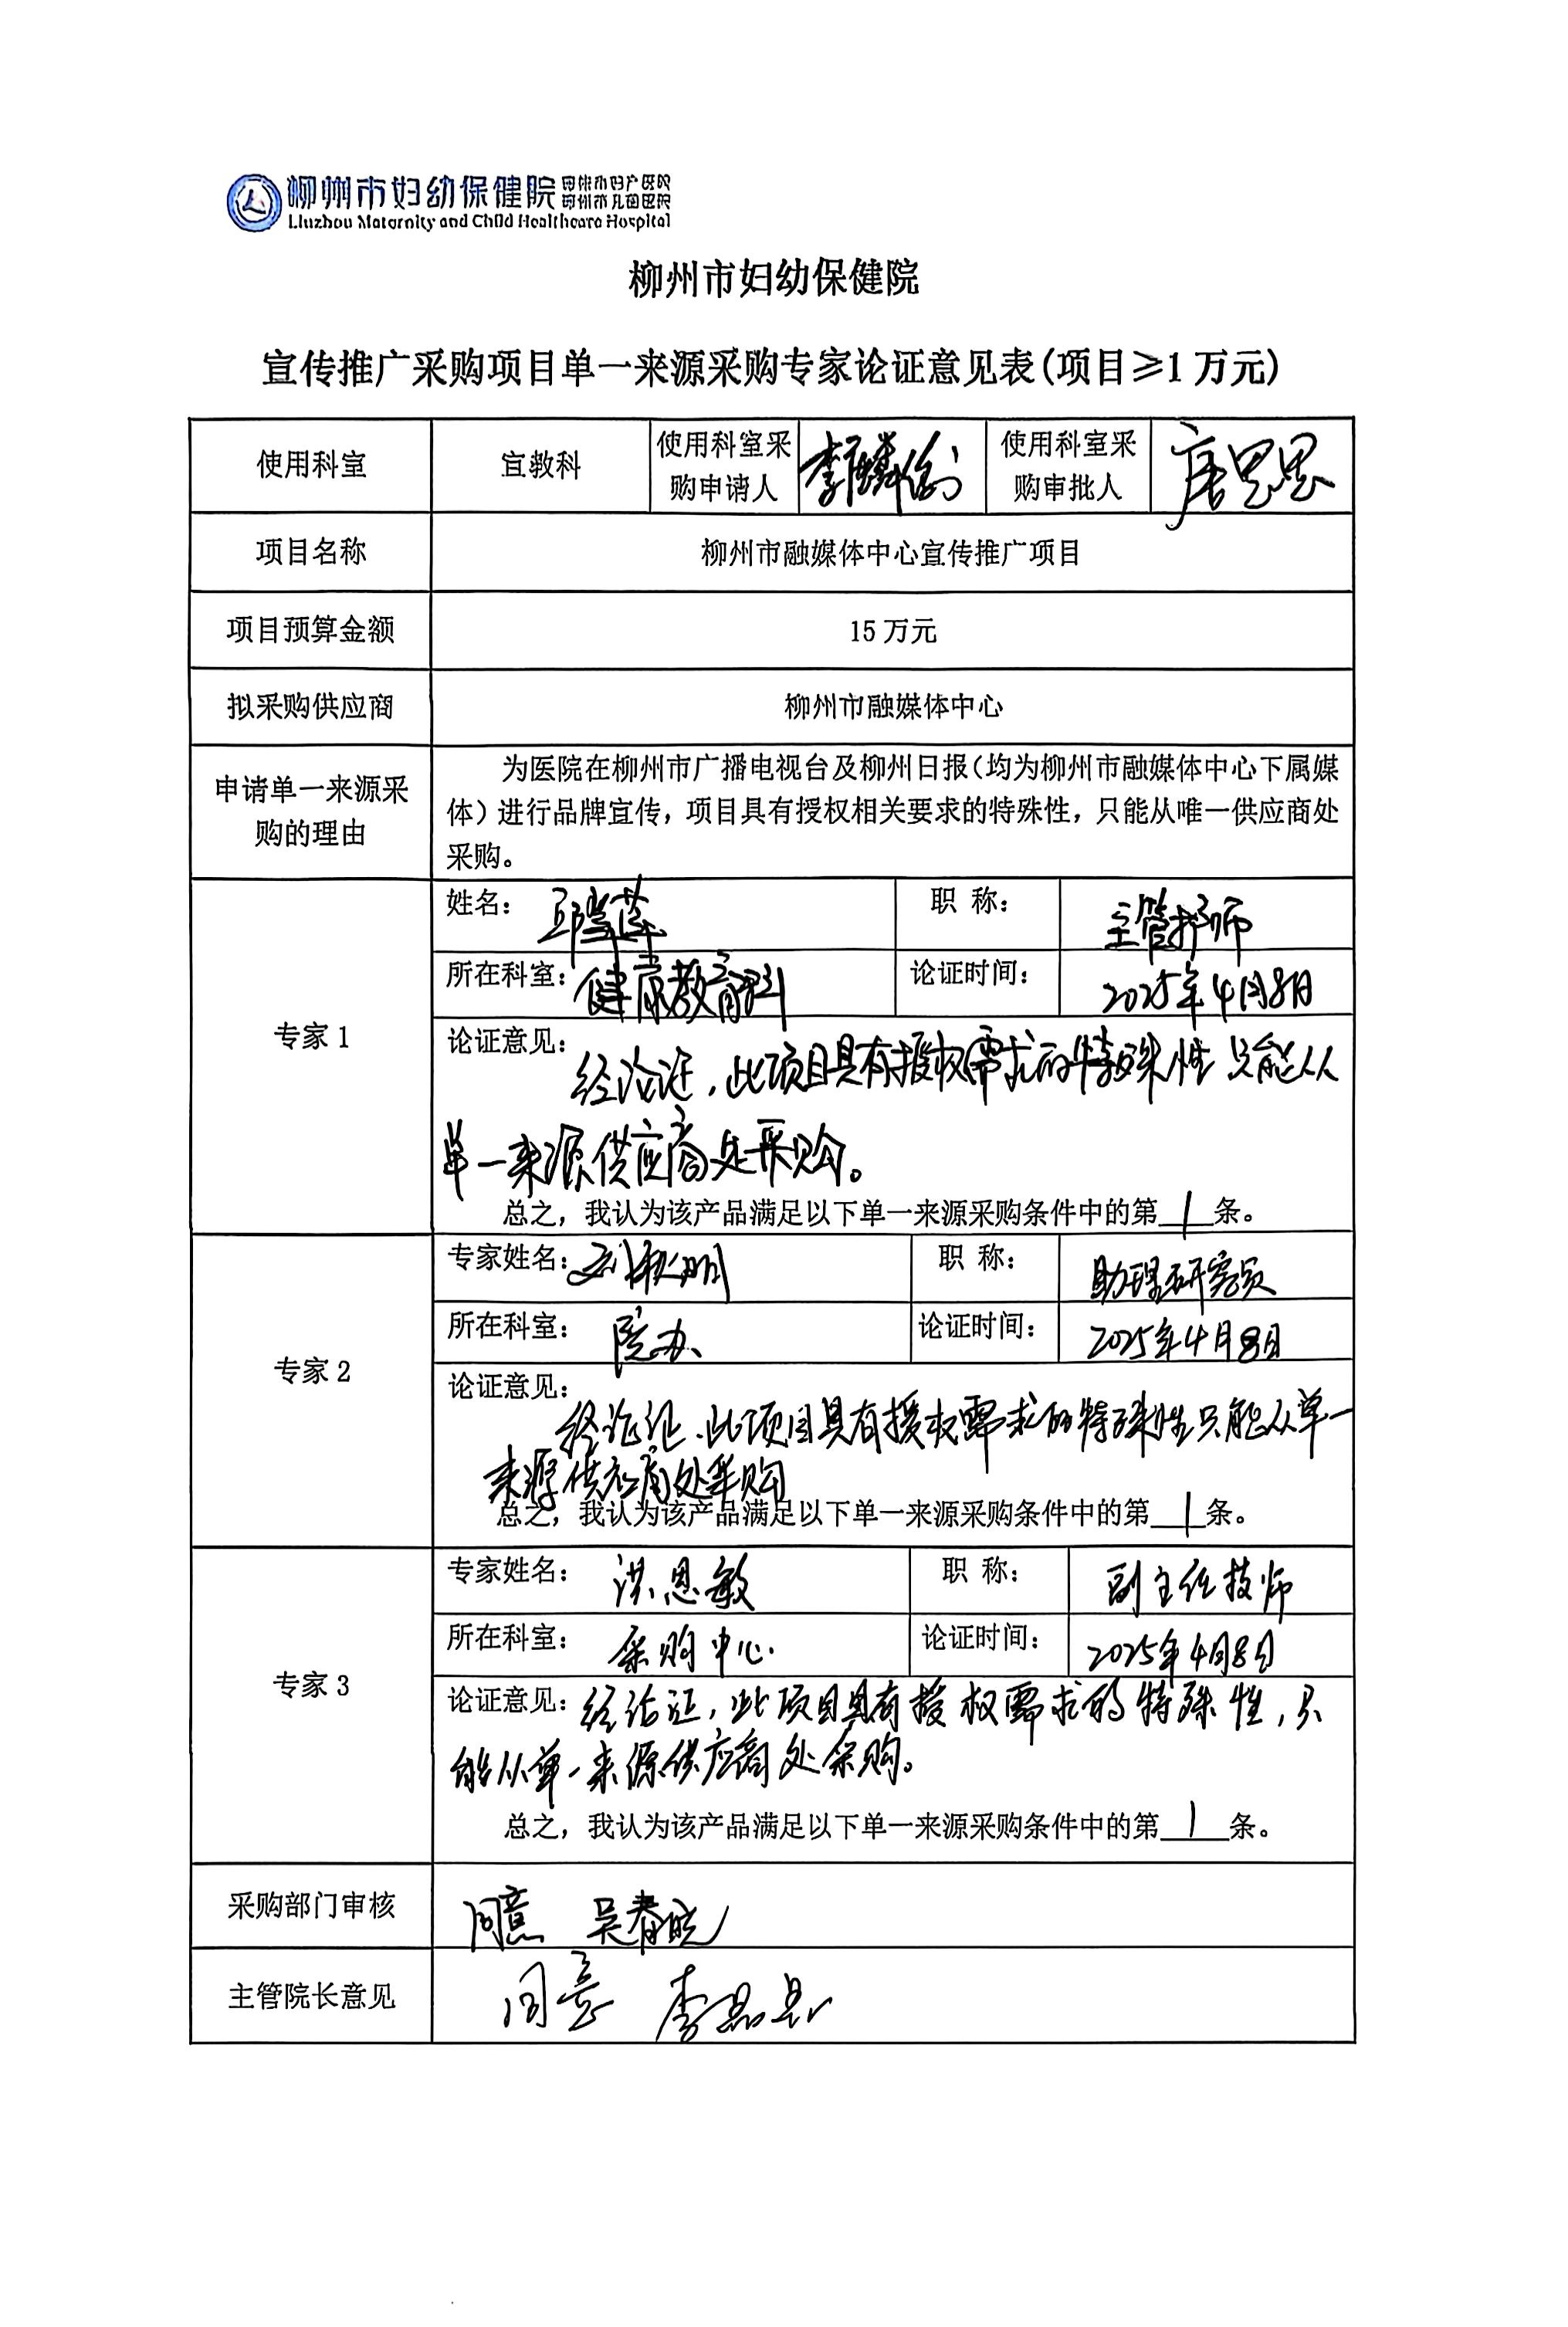 柳州市妇幼保健院 柳州市妇产医院
柳州市儿童医院
Liuzhou Maternity and Child Healthcare Hospital
柳州市妇幼保健院
宣传推广采购项目单一来源采购专家论证意见表(项目≥1万元)
使用科室 宣教科 使用科室采购申请人 李麟 使用科室采购审批人 唐思思
项目名称 柳州市融媒体中心宣传推广项目
项目预算金额 15万元
拟采购供应商 柳州市融媒体中心
申请单一来源采购的理由
为医院在柳州市广播电视台及柳州日报(均为柳州市融媒体中心下属媒
体)进行品牌宣传,项目具有授权相关要求的特殊性,只能从唯一供应商处
采购。
专家1
姓名: 职 称: 主管技师
所在科室: 健康教育科 论证时间: 2025年4月8日
论证意见: 经论证,此项目具有授权需求的特殊性 只能从
单一来源供应商处采购。
总之,我认为该产品满足以下单一来源采购条件中的第1条。
专家2
专家姓名: 职 称: 助理研究员
所在科室: 院办 论证时间: 2025年4月8日
论证意见: 经论证、此项目具有授权需求的特殊性只能从单一
来源供应商处采购
总之,我认为该产品满足以下单一来源采购条件中的第1条。
专家3
专家姓名: 洪恩敏 职 称: 副主任技师
所在科室: 采购中心 论证时间: 2025年4月8日
论证意见: 经论证,此项目具有授权需求的特殊性,只
能从单一来源供应商处采购。
总之,我认为该产品满足以下单一来源采购条件中的第1条。
采购部门审核 同意 吴春晓
主管院长意见 同意 李